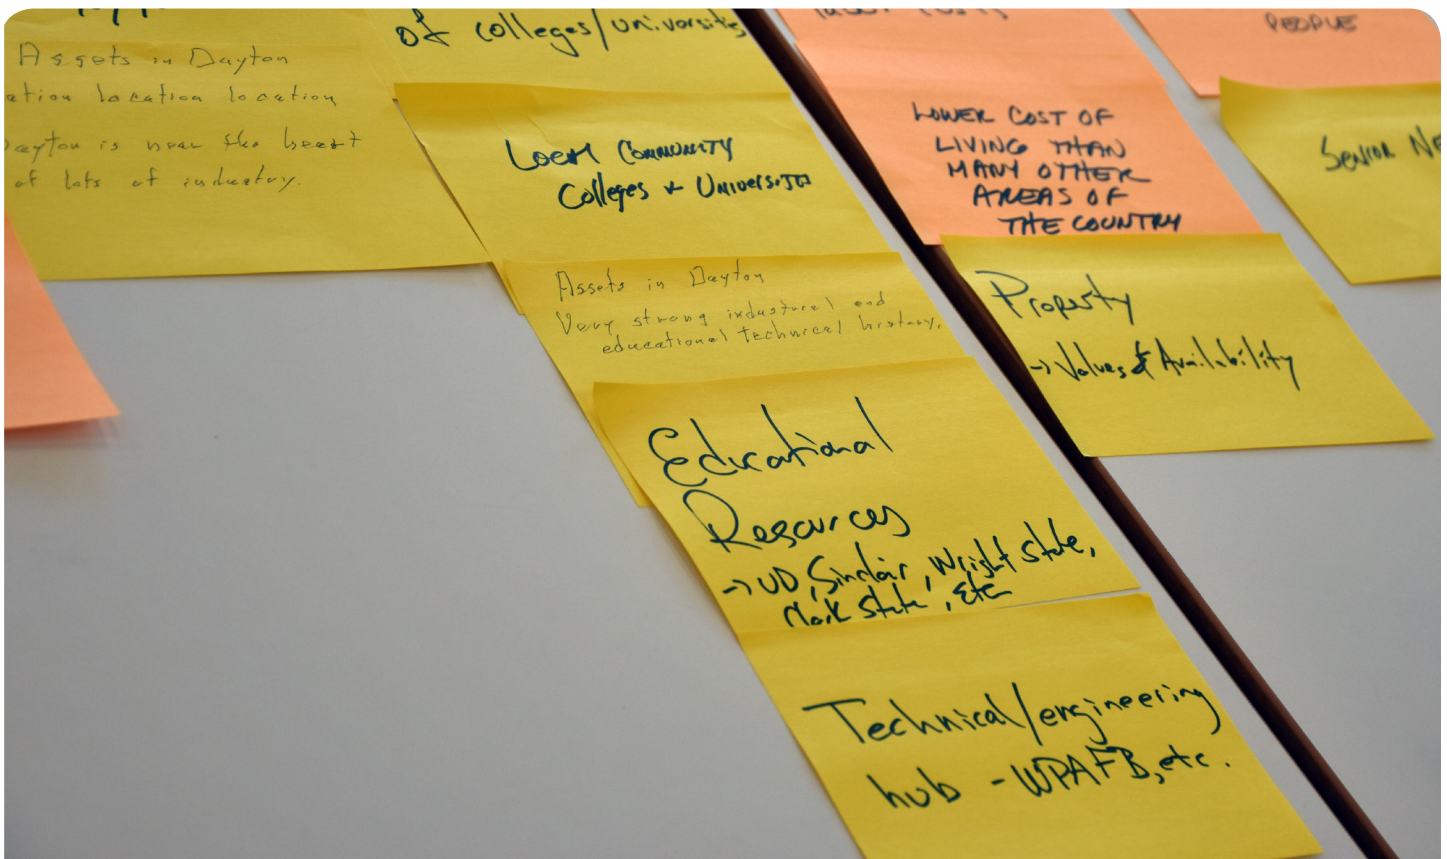 Assets in Dayton
ation location location
Dayton is near the heart
of lots of industry.
of colleges/universities
Local Community
Colleges & Universities
Assets in Dayton
Very strong industural and
educational technical history.
Educational
Resources
→ UD, Sinclair, Wright State,
Clark State, etc
Technical/engineering
hub - WPAFB, etc.
LOWER COST OF
LIVING THAN
MANY OTHER
AREAS OF
THE COUNTRY
Property
→ Values & Availability
PEOPLE
SENIOR NE